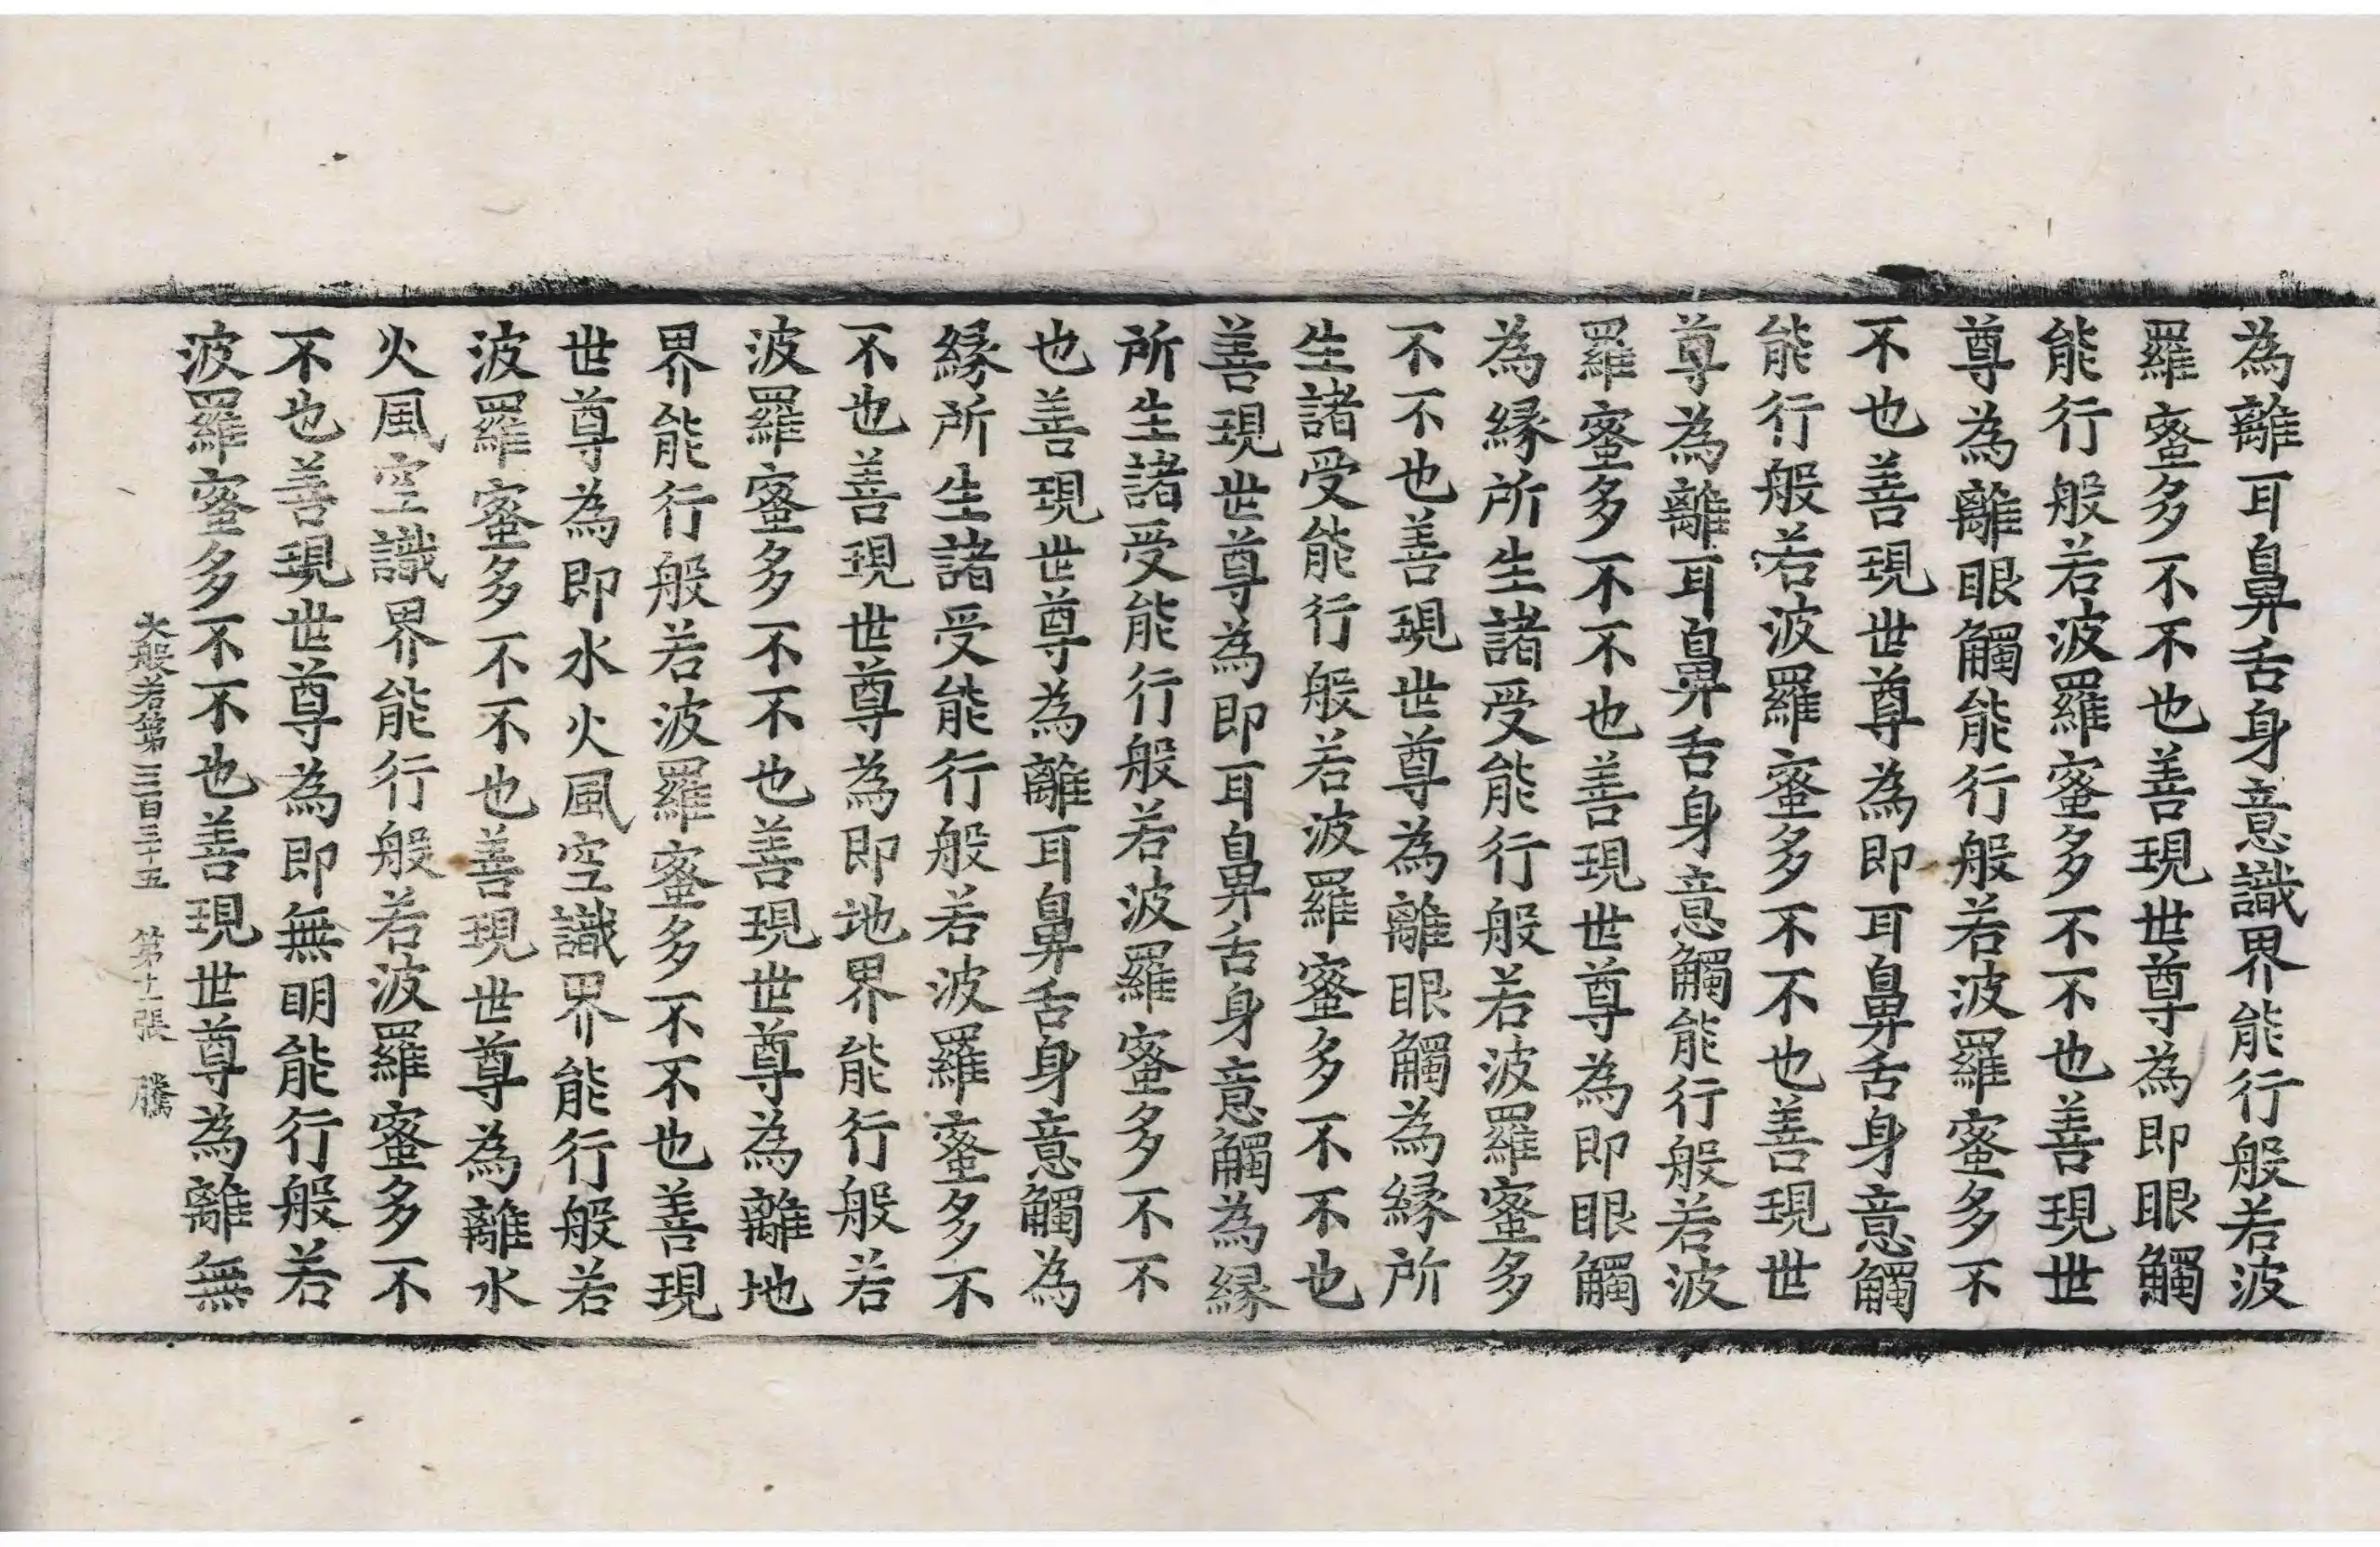 為離耳鼻舌身意識界能行般若波
羅蜜多不不也善現世尊為即眼觸
能行般若波羅蜜多不不也善現世
尊為離眼觸能行般若波羅蜜多不
不也善現世尊為即耳鼻舌身意觸
能行般若波羅蜜多不不也善現世
尊為離耳鼻舌身意觸能行般若波
羅蜜多不不也善現世尊為即眼觸
為縁所生諸受能行般若波羅蜜多
不不也善現世尊為離眼觸為縁所
生諸受能行般若波羅蜜多不不也
善現世尊為即耳鼻舌身意觸為縁
所生諸受能行般若波羅蜜多不不
也善現世尊為離耳鼻舌身意觸為
縁所生諸受能行般若波羅蜜多不
不也善現世尊為即地界能行般若
波羅蜜多不不也善現世尊為離地
界能行般若波羅蜜多不不也善現
世尊為即水火風空識界能行般若
波羅蜜多不不也善現世尊為離水
火風空識界能行般若波羅蜜多不
不也善現世尊為即無明能行般若
波羅蜜多不不也善現世尊為離無
大般若第三百三十五 第十一張 騰